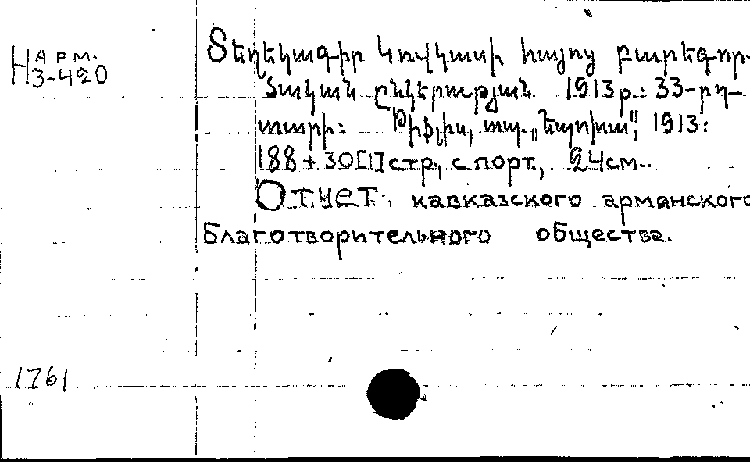 Н арм.
3-420
Տեղեկագիր Կովկասի հայոց բարեգոր-
ծական ընկերության 1913 թ.: 33-րդ
տարի: Թիֆլիս, տպ. „Էպոխա“, 1913:
188 + 30[1] стр, с порт, 24см.
Отчет кавказского армянского
благотворительного общества.
1761